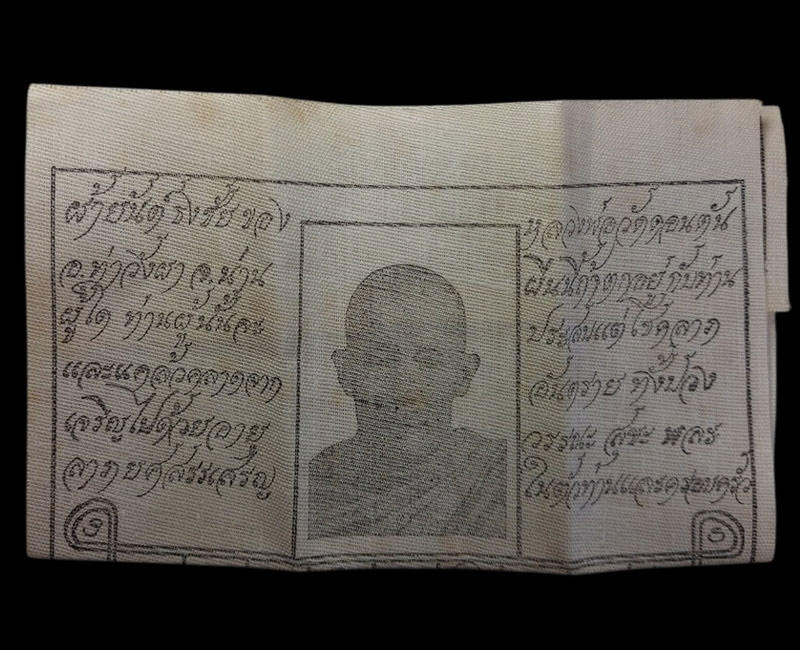 ผ้ายันต์ ธงชัย ของ หลวงพ่อวัดดอนตัน
อ.ท่าวังผา จ.น่าน ผืนนี้ถ้าตกอยู่กับท่าน
ผู้ใด ท่านผู้นั้นจะ ประสบแต่โชคลาภ
และแคล้วคลาดจาก อันตราย ทั้งปวง
เจริญไปด้วยอายุ วรรณะ สุขะ พละ
ลาภ ยศ สรรเสริญ ในตัวท่านและครอบครัว